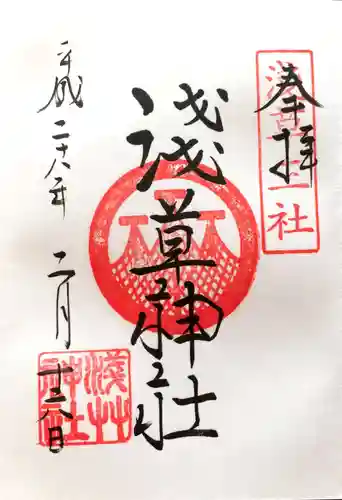 奉拝
浅草神社
平成二十八年 二月 十六日
浅草神社